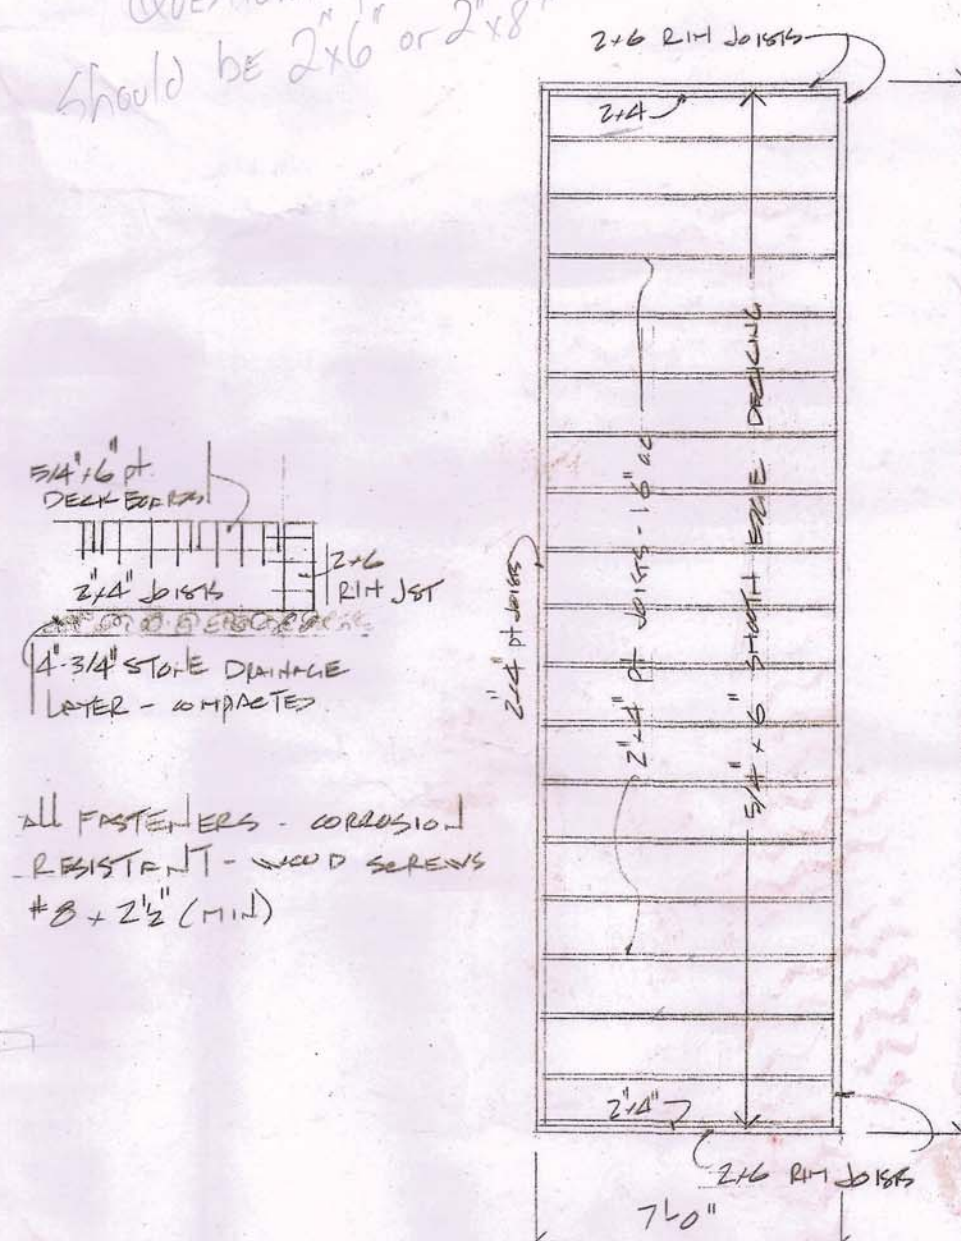 should be 2"x6" or 2"x8"
2x6 RIM JOISTS
2x4"
5/4"x6" pt.
DECK BOARDS
2"x4" JOISTS
2x6
RIM JST
4"-3/4" STONE DRAINAGE
LAYER - COMPACTED
ALL FASTENERS - CORROSION
RESISTANT - WOOD SCREWS
#8 x 2 1/2" (MIN)
2"x4" pt JOISTS
2"x4" pt JOISTS - 16" oc
5/4" x 6" SMOOTH EDGE DECKING
2"x4"
2x6 RIM JOISTS
7'-0"